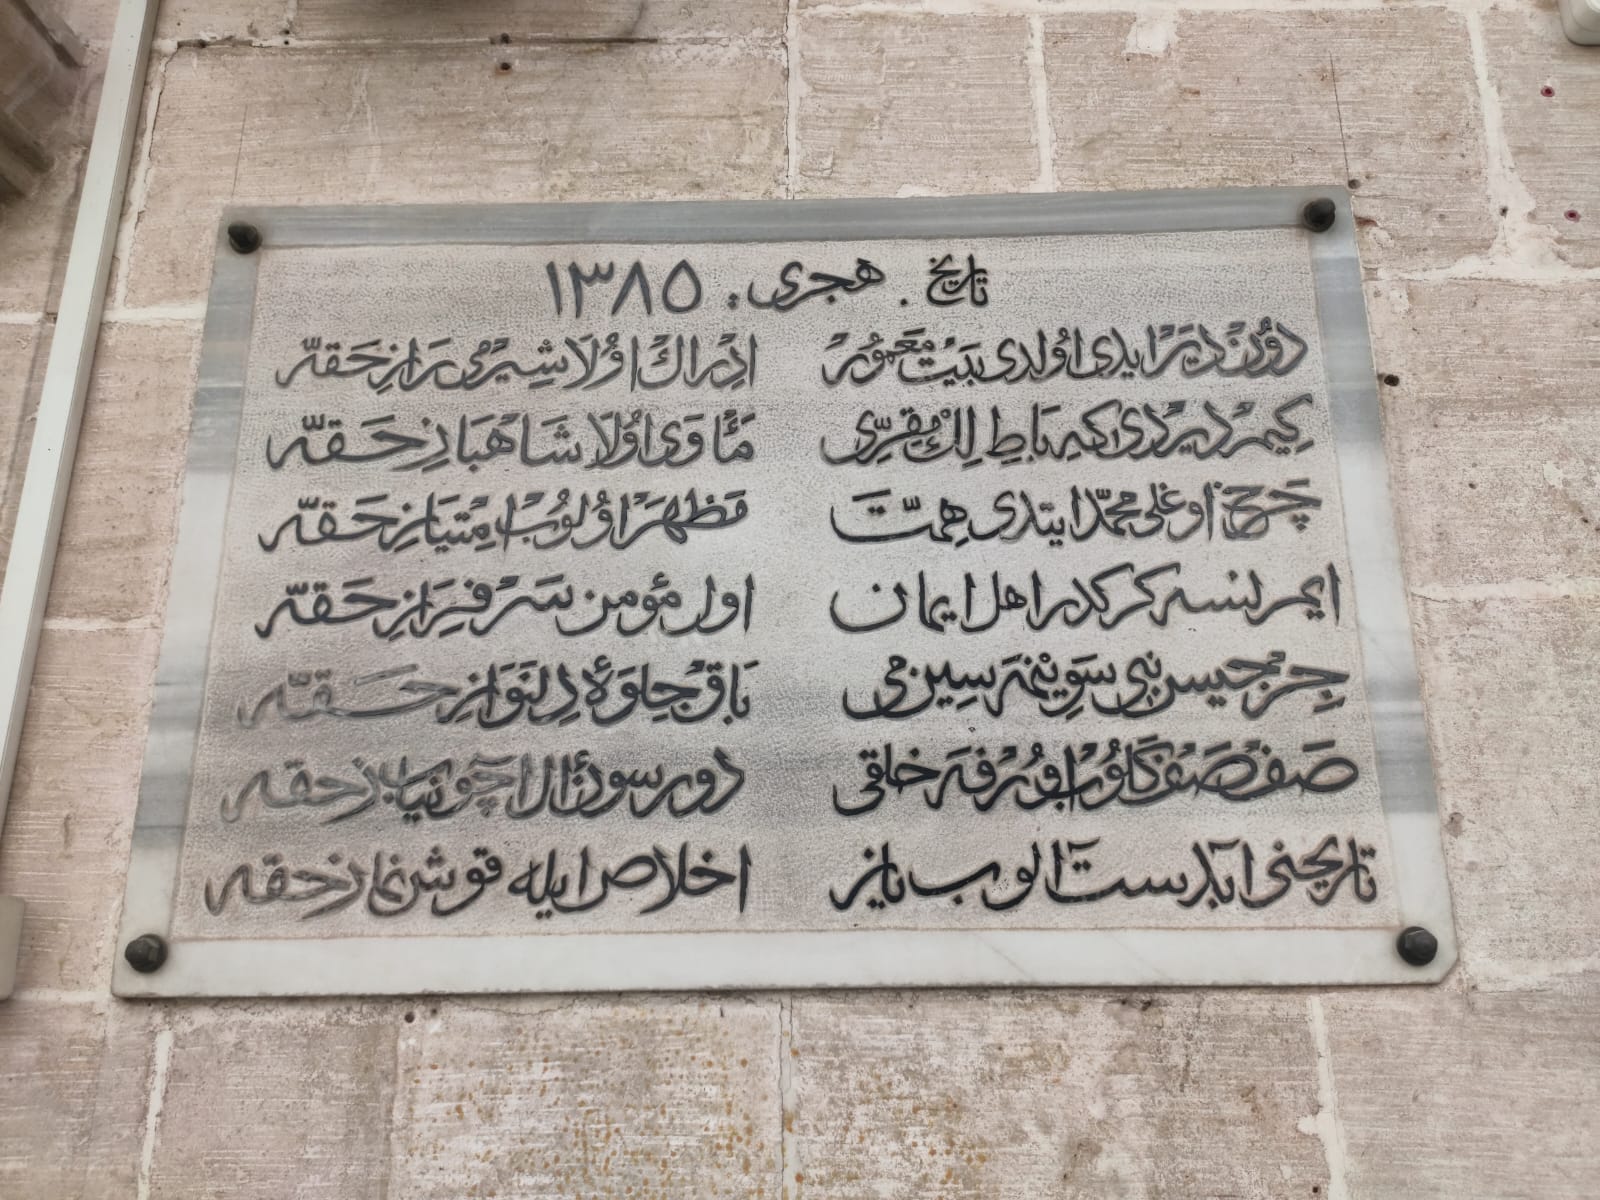 تاريخ . هجری : ١٣٨٥
دؤن دير ايدی اولدی بيت معمور ادراك اولا شيرمی راز حقه
كيمر دير دی كه باطلك مقری مأوى اولا شاهباز حقه
چرخ اوغلی محمد ايتدی همت مظهر اولوب امتياز حقه
ايمرلنسه كركدر اهل ايمان اول مؤمن سرفراز حقه
جرجيس نبی سوينمه سين می باق جلوهٔ دلنواز حقه
صف صف كلوب اورفه خلقی دورسون ال آچوب نياز حقه
تاريخنی آبدست الوب ياز اخلاص ايله قوش نماز حقه